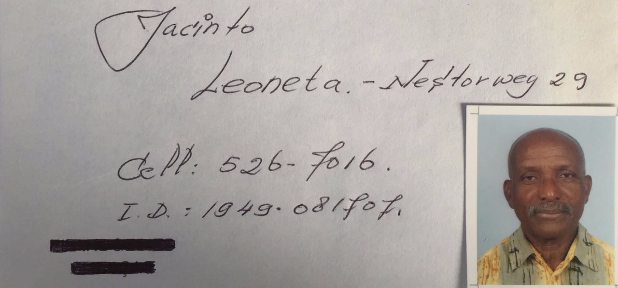 Jacinto
Leoneta. - Nestorweg 29
Cell: 526-7016.
I.D.: 1949.081707.